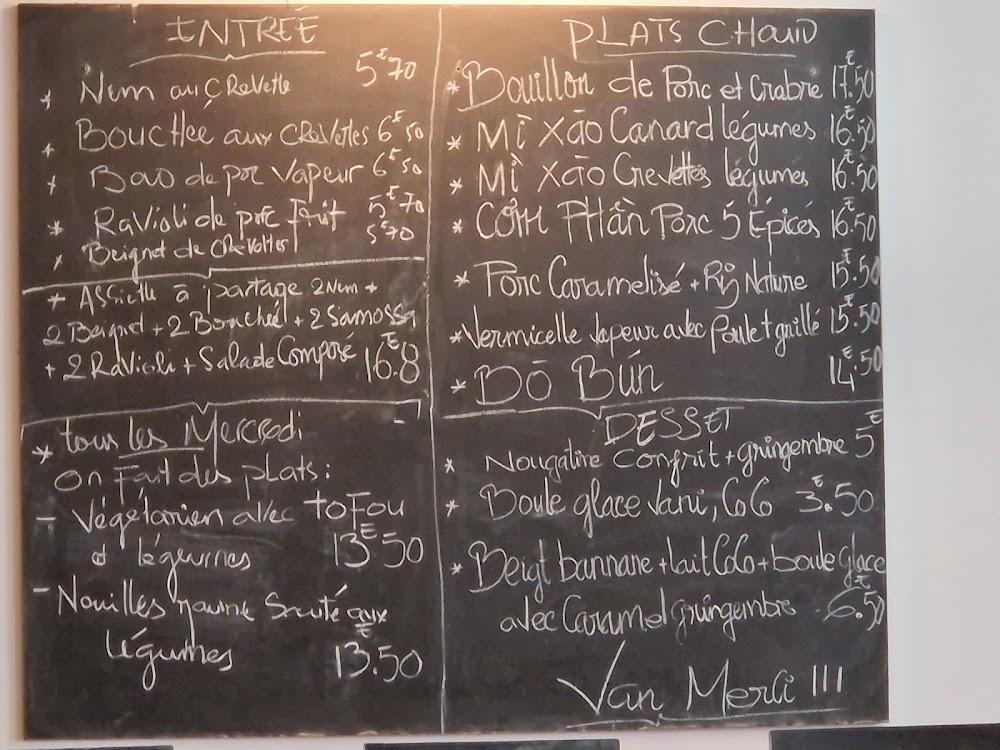 ENTRÉE
* Nem au CReVette 5€70
* BoucHée aux CReVettes 6€50
* Bao de porc Vapeur 6€50
* RaVioli de porc Frit 5€70
* Beignet de CReVettes 5€70
* Assiette à partage 2 Nem +
2 Beignet + 2 Bouchée + 2 Samossa
+ 2 RaVioli + Salade Composé 16.€8
* tous les Mercredi
on Fait des plats :
- Végétarien avec toFou
et légumes 13€50
- Nouilles jaune Sauté aux
légumes 13.€50
PLATS CHAUD
* Bouillon de Porc et Crabre 17.€50
* Mì Xão Canard légumes 16.€50
* Mì Xão Crevettes légumes 16.€50
* CƠM PHần Porc 5 Épicés 16.€50
* Porc Caramelisé + Rij Nature 15.€50
* Vermicelle vapeur avec Poulet grillé 15.€50
* Bō Bún 14.€50
DESSET
* Nougatine Confrit + gringembre 5€
* Boule glace Vani, CoCo 3.€50
* Beigt bannane + lait CoCo + boule glace
avec Caramel gringembre 6.€50
Van Merci !!!